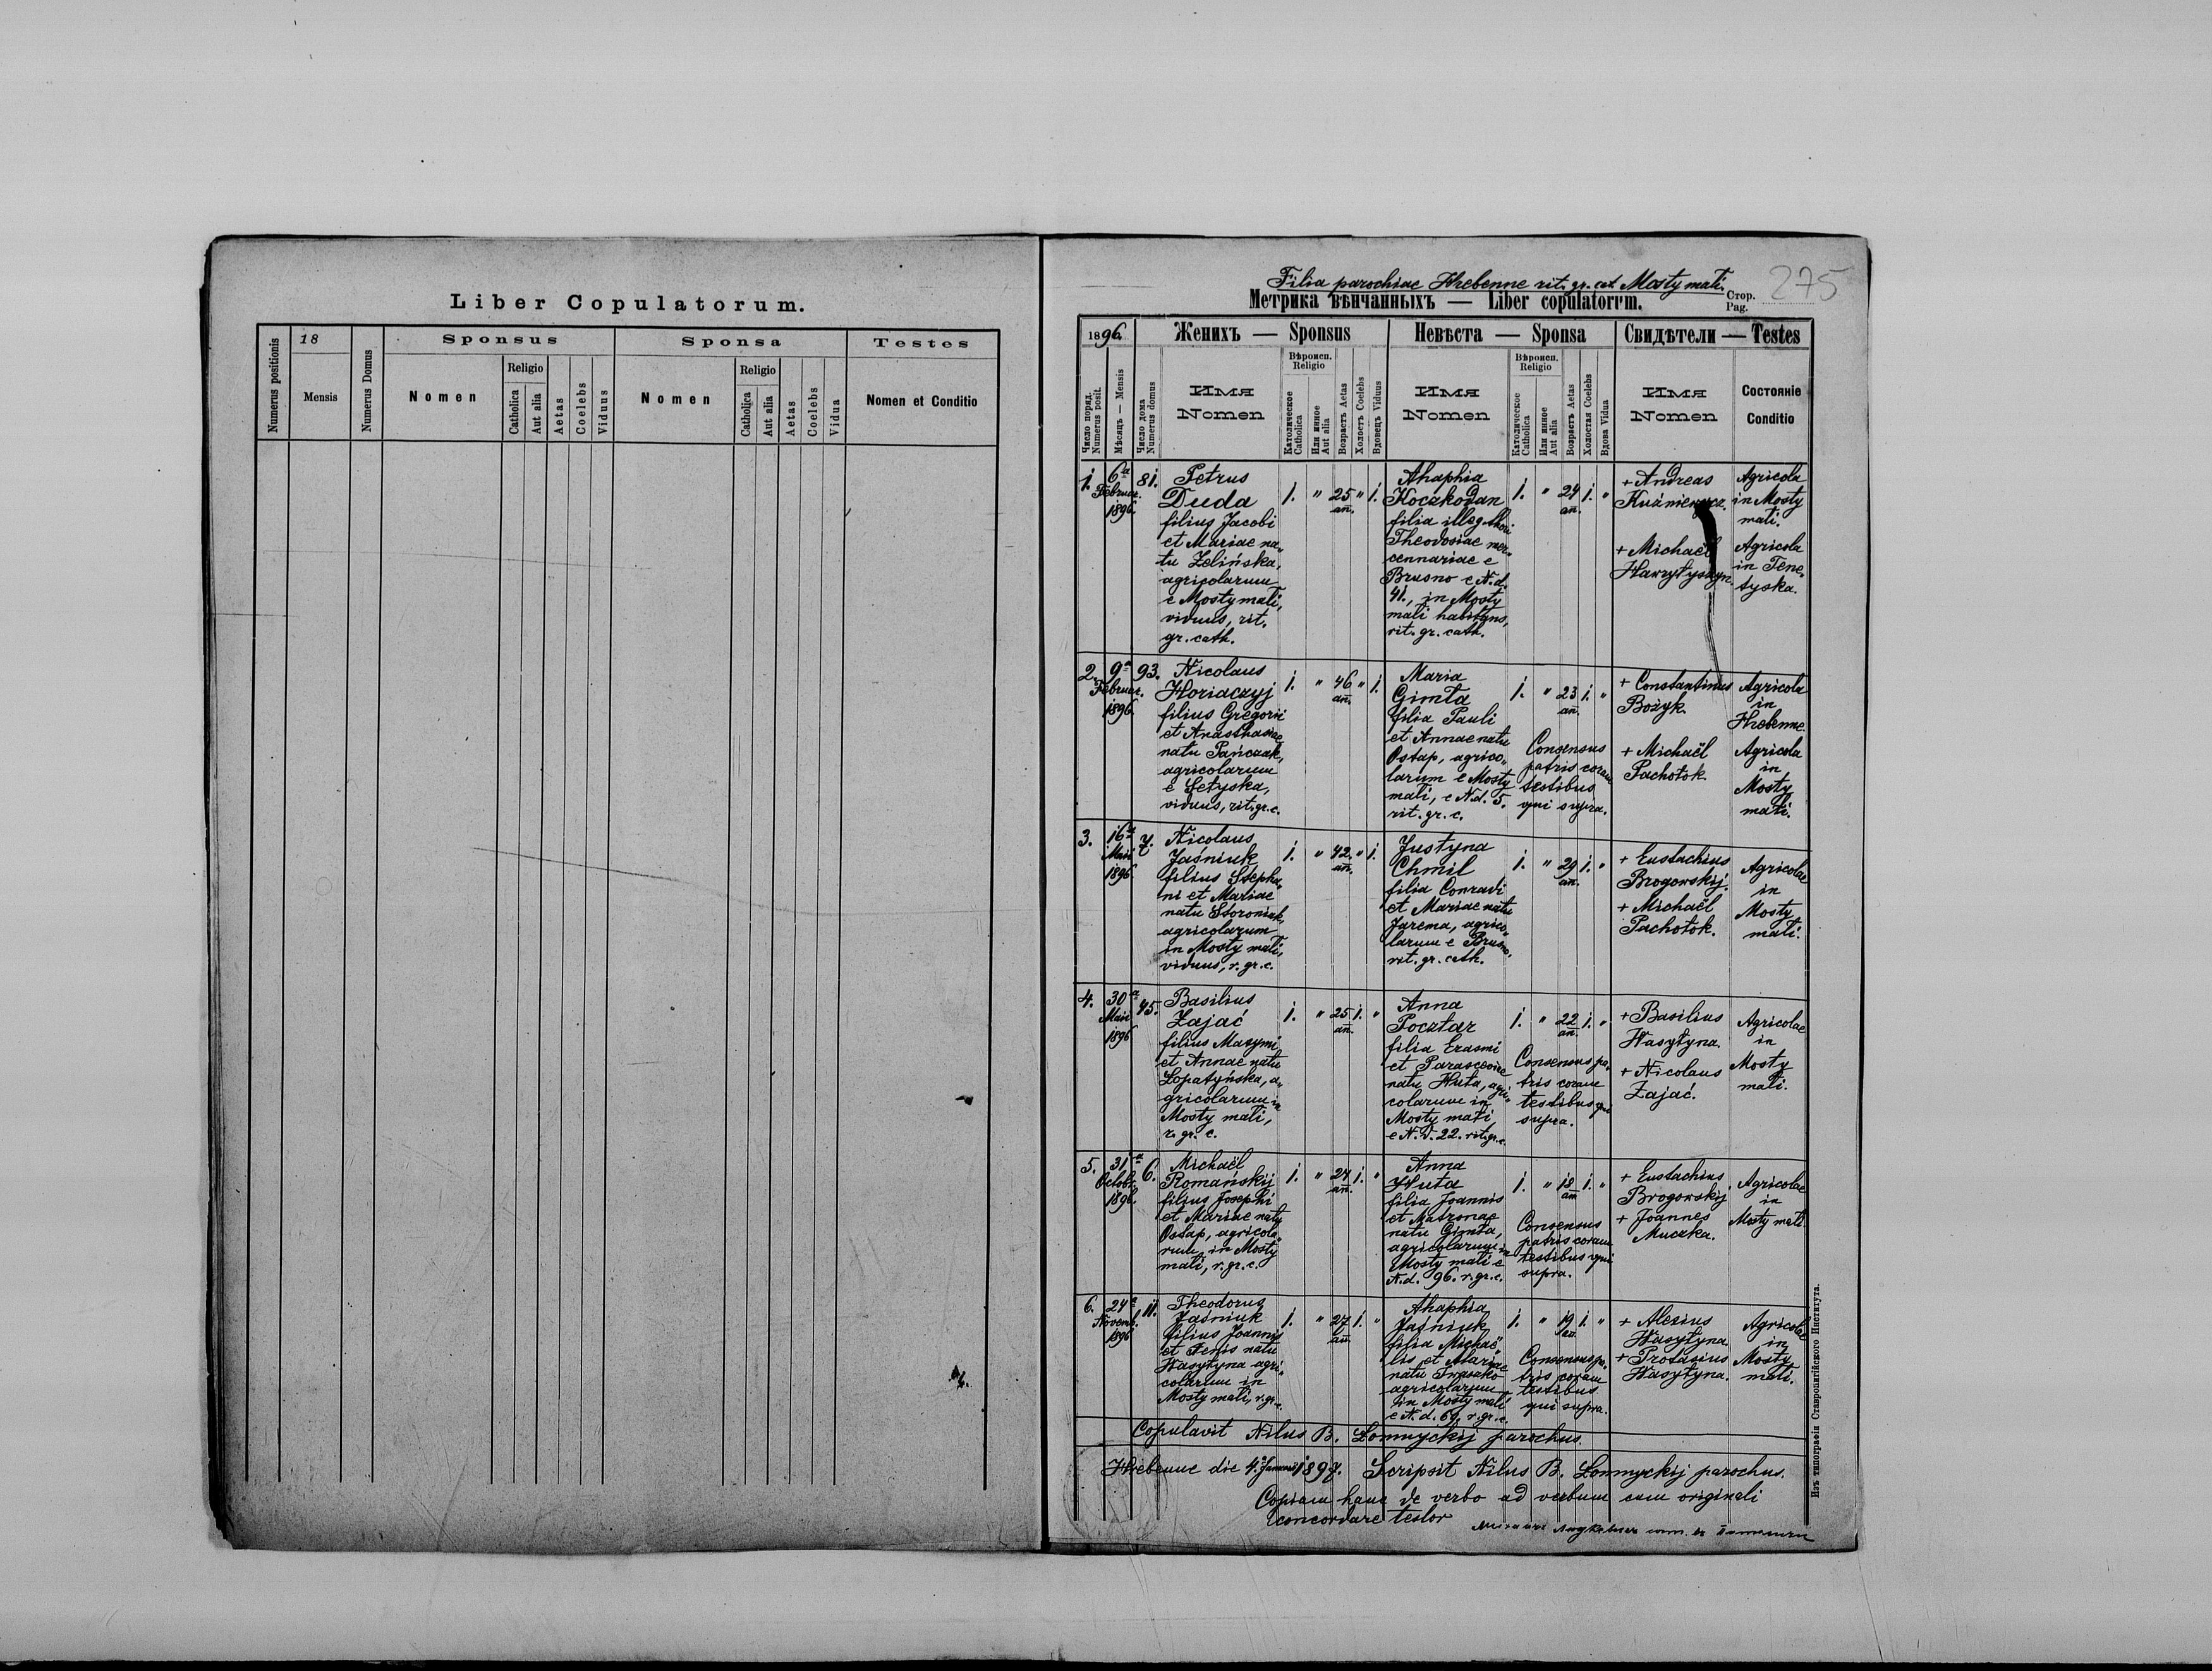 Liber Copulatorum.
Numerus positionis
18
Mensis
Numerus Domus
Sponsus
Nomen
Religio
Catholica
Aut alia
Aetas
Coelebs
Viduus
Sponsa
Nomen
Religio
Catholica
Aut alia
Aetas
Coelebs
Vidua
Testes
Nomen et Conditio
Filia parochiae Hrebenne rit. gr. cat. Mosty mali.
275
Метрика вѣнчанныхъ — Liber copulatorum.
Стор.
Pag.
1896.
Женихъ — Sponsus
Невѣста — Sponsa
Свидѣтели — Testes
Число поряд.
Numerus posit.
Мѣсяцъ — Mensis
Число дома
Numerus domus
Имя
Nomen
Вѣроисп.
Religio
Католическое
Catholica
Или иное
Aut alia
Возрастъ Aetas
Холостъ Coelebs
Вдовецъ Viduus
Имя
Nomen
Вѣроисп.
Religio
Католическое
Catholica
Или иное
Aut alia
Возрастъ Aetas
Холостая Coelebs
Вдова Vidua
Имя
Nomen
Состояніе
Conditio
1.
6a
Februar.
1896.
81.
Petrus
Duda
filius Jacobi
et Mariae na„
tu Zelińska,
agricolarum
e Mosty mali,
viduus, rit.
gr. cath.
1. " 25 " 1.
an.
Ahaphia
Koczkodan
filia illeg. thori
Theodosiae mer„
cennariae e
Brusno e N.d.
41., in Mosty
mali habitans,
rit. gr. cath.
1. " 24 1. "
an.
+ Andreas
Kuźniewycz.
+ Michaël
Hawryłyszyn.
Agricola
in Mosty
mali.
Agricola
in Tene„
tyska.
2.
9a
Februar.
1896.
93.
Nicolaus
Horiaczyj
filius Gregorii
et Anasthasiae
natu Pańczak,
agricolarum
e Setyska,
viduus, rit. gr. c.
1. " 46 " 1.
an.
Maria
Gimta
filia Pauli
et Annae natu
Ostap, agrico„
larum e Mosty
mali, e N.d. 5.
rit. gr. c.
1. " 23 1. "
an.
Consensus
patris coram
testibus
qui supra.
+ Constantinus
Bożyk.
+ Michaël
Pachołok.
Agricola
in
Hrebenne
Agricola
in
Mosty
mali.
3.
16a
Maii
1896
7.
Nicolaus
Jaśniuk
filius Stepha„
ni et Mariae
natu Storoniak,
agricolarum
in Mosty mali,
viduus, r. gr. c.
1. " 42 " 1.
an.
Justyna
Chmil
filia Conradi
et Mariae natu
Jarema, agrico„
larum e Brusno,
rit. gr. cath.
1. " 29 1. "
an.
+ Eustachius
Brogowskij.
+ Michaël
Pachołok.
Agricolae
in
Mosty
mali.
4.
30a
Maii
1896
45.
Basilius
Zająć
filius Maxymi
et Annae natu
Łopatyńska, a„
gricolarum in
Mosty mali,
r. gr. c.
1. " 25 1. "
an.
Anna
Pocztar
filia Erasmi
et Parasceviae
natu Huta, agri„
colarum in
Mosty mali
e N. d. 22. rit. gr. c.
1. " 22 1. "
an.
Consensus pa„
tris coram
testibus qui
supra.
+ Basilius
Wasyłyna.
+ Nicolaus
Zająć.
Agricolae
in
Mosty
mali.
5.
31a
Octobr.
1896.
6.
Michaël
Romańskij
filius Josephi
et Mariae natu
Ostap, agricola„
rum, in Mosty
mali, r. gr. c.
1. " 24 1. "
an.
Anna
Huta
filia Joannis
et Matronae
natu Gimta,
agricolarum in
Mosty mali e
N.d. 96. r. gr. c.
1. " 18 1. "
an.
Consensus
patris coram
testibus qui
supra.
+ Eustachius
Brogowskij
+ Joannes
Muczka.
Agricolae
in
Mosty mali
6.
24a
Novemb.
1896
11.
Theodorus
Jaśniuk
filius Joannis
et Xenis natu
Wasyłyna agri„
colarum in
Mosty mali, r. gr. c.
1. " 27 1. "
an.
Ahaphia
Jaśniuk
filia Michaë„
lis et Mariae
natu Iwasko
agricolarum
in Mosty mali
e N. d. 61. r. gr. c.
1. " 19 1. "
an.
Consensus pa„
tris coram
testibus
qui supra.
+ Alexius
Wasyłyna
+ Protasius
Wasyłyna.
Agricolae
in
Mosty
mali.
Copulavit Nilus B. Łomnyckij parochus.
Hrebenne die 4. Januarii 1897. Scripsit Nilus B. Łomnyckij parochus.
Copiam hanc de verbo ad verbum cum originali
concordare testor
Изъ типографіи Ставропигійского Института.